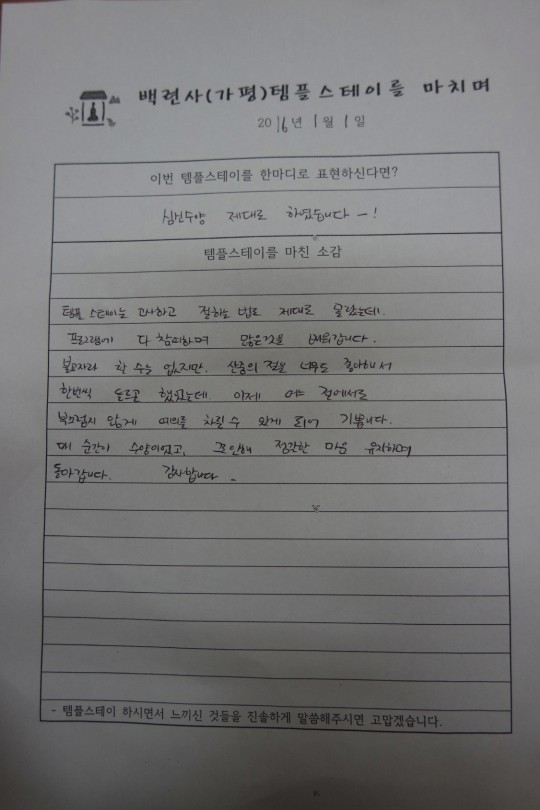 백련사(가평)템플스테이를 마치며
2016년 1월 1일
이번 템플스테이를 한마디로 표현하신다면?
심신수양 제대로 하였습니다 ~!
템플스테이를 마친 소감
템플 스테이는 고사하고 절하는 법도 제대로 몰랐는데.
프로그램에 다 참피하며 많은것을 배워갑니다.
불교자라 할 수는 없지만, 산중의 절을 너무도 좋아해서
한번씩 들르곤 했었는데 이제 어느 절에서도
부끄럽지 않게 예의를 차릴 수 있게 되어 기쁩니다.
매 순간이 수양이었고, 그로인해 정갈한 마음 유지하며
돌아갑니다. 감사합니다
- 템플스테이 하시면서 느끼신 것들을 진솔하게 말씀해주시면 고맙겠습니다.